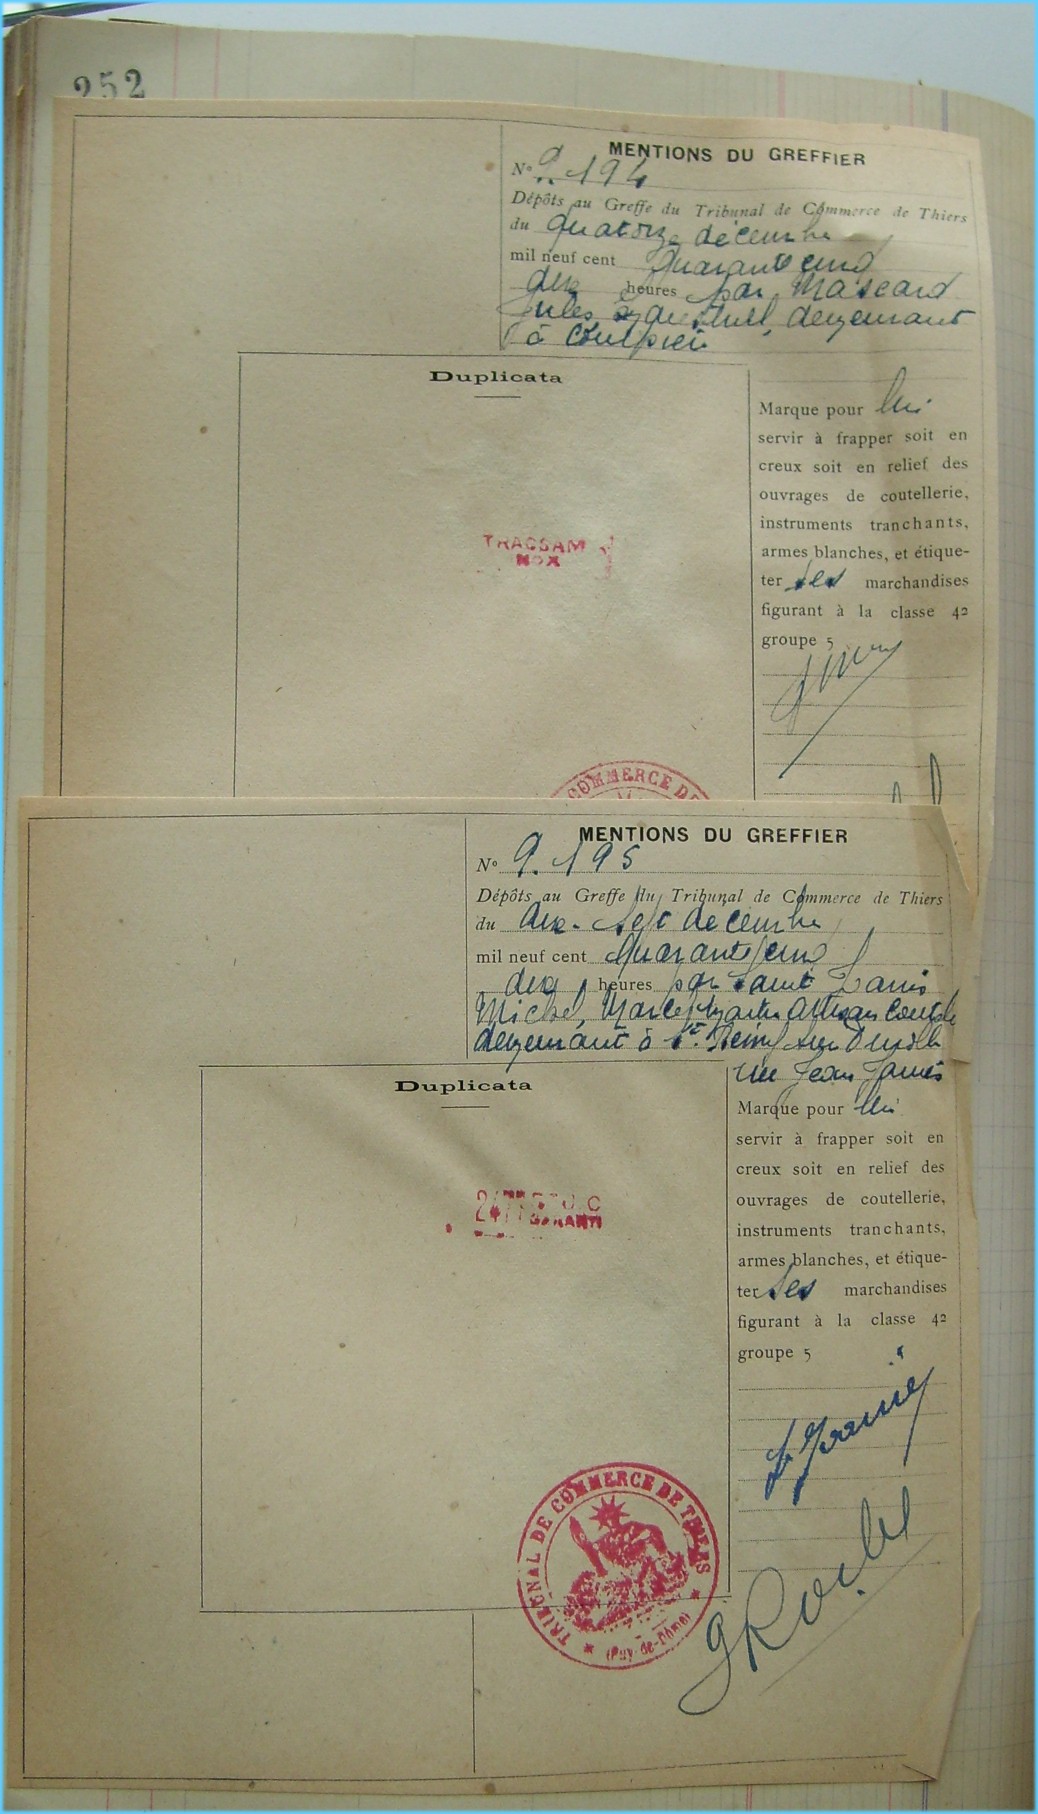 252
MENTIONS DU GREFFIER
N° 9.194
Dépôts au Greffe du Tribunal de Commerce de Thiers
du quatorze décembre
mil neuf cent quarante cinq
dix heures par Mascard
Jules demeurant
à Courpière
Duplicata
Marque pour lui
servir à frapper soit en
creux soit en relief des
ouvrages de coutellerie,
instruments tranchants,
armes blanches, et étique-
ter ses marchandises
figurant à la classe 42
groupe 5
TRACSAM
NOX
COMMERCE DE
MENTIONS DU GREFFIER
N° 9.195
Dépôts au Greffe du Tribunal de Commerce de Thiers
du dix-sept décembre
mil neuf cent quarante cinq
dix heures par Saint
Michel, artisan
demeurant à St. Rémy sur Durolle
rue Jean Jaurès
Duplicata
Marque pour lui
servir à frapper soit en
creux soit en relief des
ouvrages de coutellerie,
instruments tranchants,
armes blanches, et étique-
ter ses marchandises
figurant à la classe 42
groupe 5
GARANTI
TRIBUNAL DE COMMERCE DE THIERS
(Puy-de-Dôme)